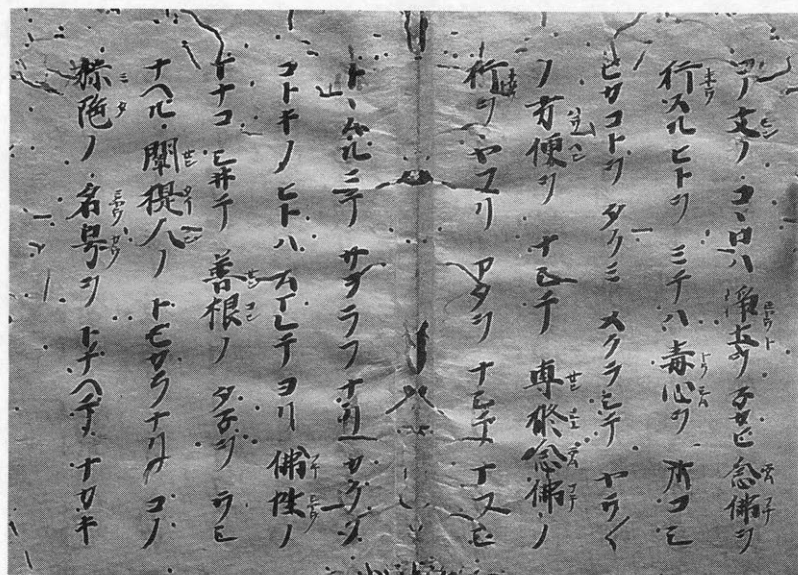 コノ文ノ コヽロハ 浄土ヲ 子カヒ 念佛ヲ
行スルヒトヲ ミテハ 毒心ヲ オコシ
ヒカコトヲ タクミ メクラシテ ヤウ〱
ノ方便ヲ ナシテ 専修念佛ノ
行ヲ ヤフリ アタヲ ナシテ
トヽムルニテ サフラフナリ カクノ
コトキノヒトハ ムマレテヨリ 佛性ノ
マナコ シヰテ 善根ノ タ子ヲ ウシ
ナヘル 闡提人ノ トモカラナリ コノ
弥陀ノ 名号ヲ トナヘテ ナカキ